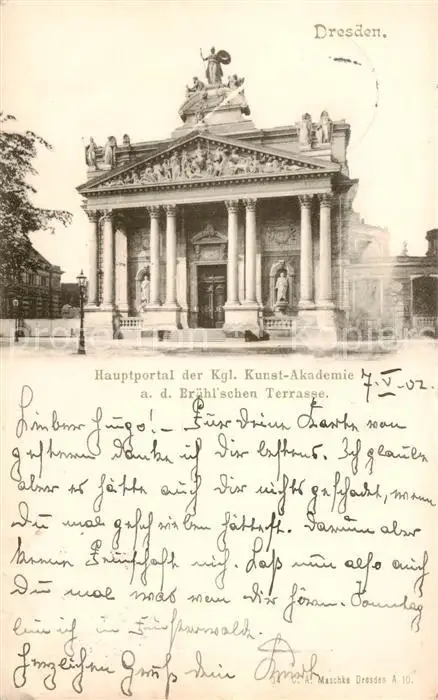 Dresden.
Hauptportal der Kgl. Kunst-Akademie
a. d. Brühl'schen Terrasse.
7-V-02.
Lieber Hugo! - Für Deine Karte von
gestern danke ich Dir bestens. Ich glaube
aber es hätte auch Dir nichts geschadet, wenn
Du mal geschrieben hättest. Darum aber
keine Feindschaft nich. Laß nun also auch
Du mal was von dir hören. Sonntag
bin ich in Finsterwalde.
Herzlichen Gruß dein Kurt
C. A. Maschke Dresden A 10.